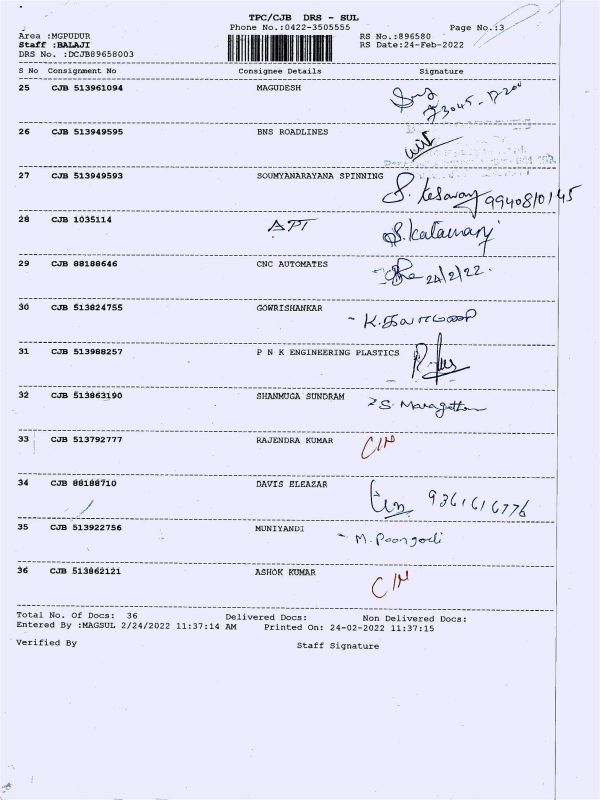 TPC/CJB DRS - SUL
Phone No.:0422-3505555 Page No.:3
Area :MGPUDUR RS No.:896580
Staff :BALAJI RS Date:24-Feb-2022
DRS No. :DCJB89658003
S No Consignment No Consignee Details Signature
25 CJB 513961094 MAGUDESH
26 CJB 513949595 BNS ROADLINES
27 CJB 513949593 SOUMYANARAYANA SPINNING
9940810145
28 CJB 1035114 APT
29 CJB 88188646 CNC AUTOMATES
24/2/22.
30 CJB 513824755 GOWRISHANKAR
31 CJB 513988257 P N K ENGINEERING PLASTICS
32 CJB 513863190 SHANMUGA SUNDRAM
33 CJB 513792777 RAJENDRA KUMAR
34 CJB 88188710 DAVIS ELEAZAR
9361616776
35 CJB 513922756 MUNIYANDI
M. Poongodi
36 CJB 513862121 ASHOK KUMAR
Total No. Of Docs: 36 Delivered Docs: Non Delivered Docs:
Entered By :MAGSUL 2/24/2022 11:37:14 AM Printed On: 24-02-2022 11:37:15
Verified By Staff Signature